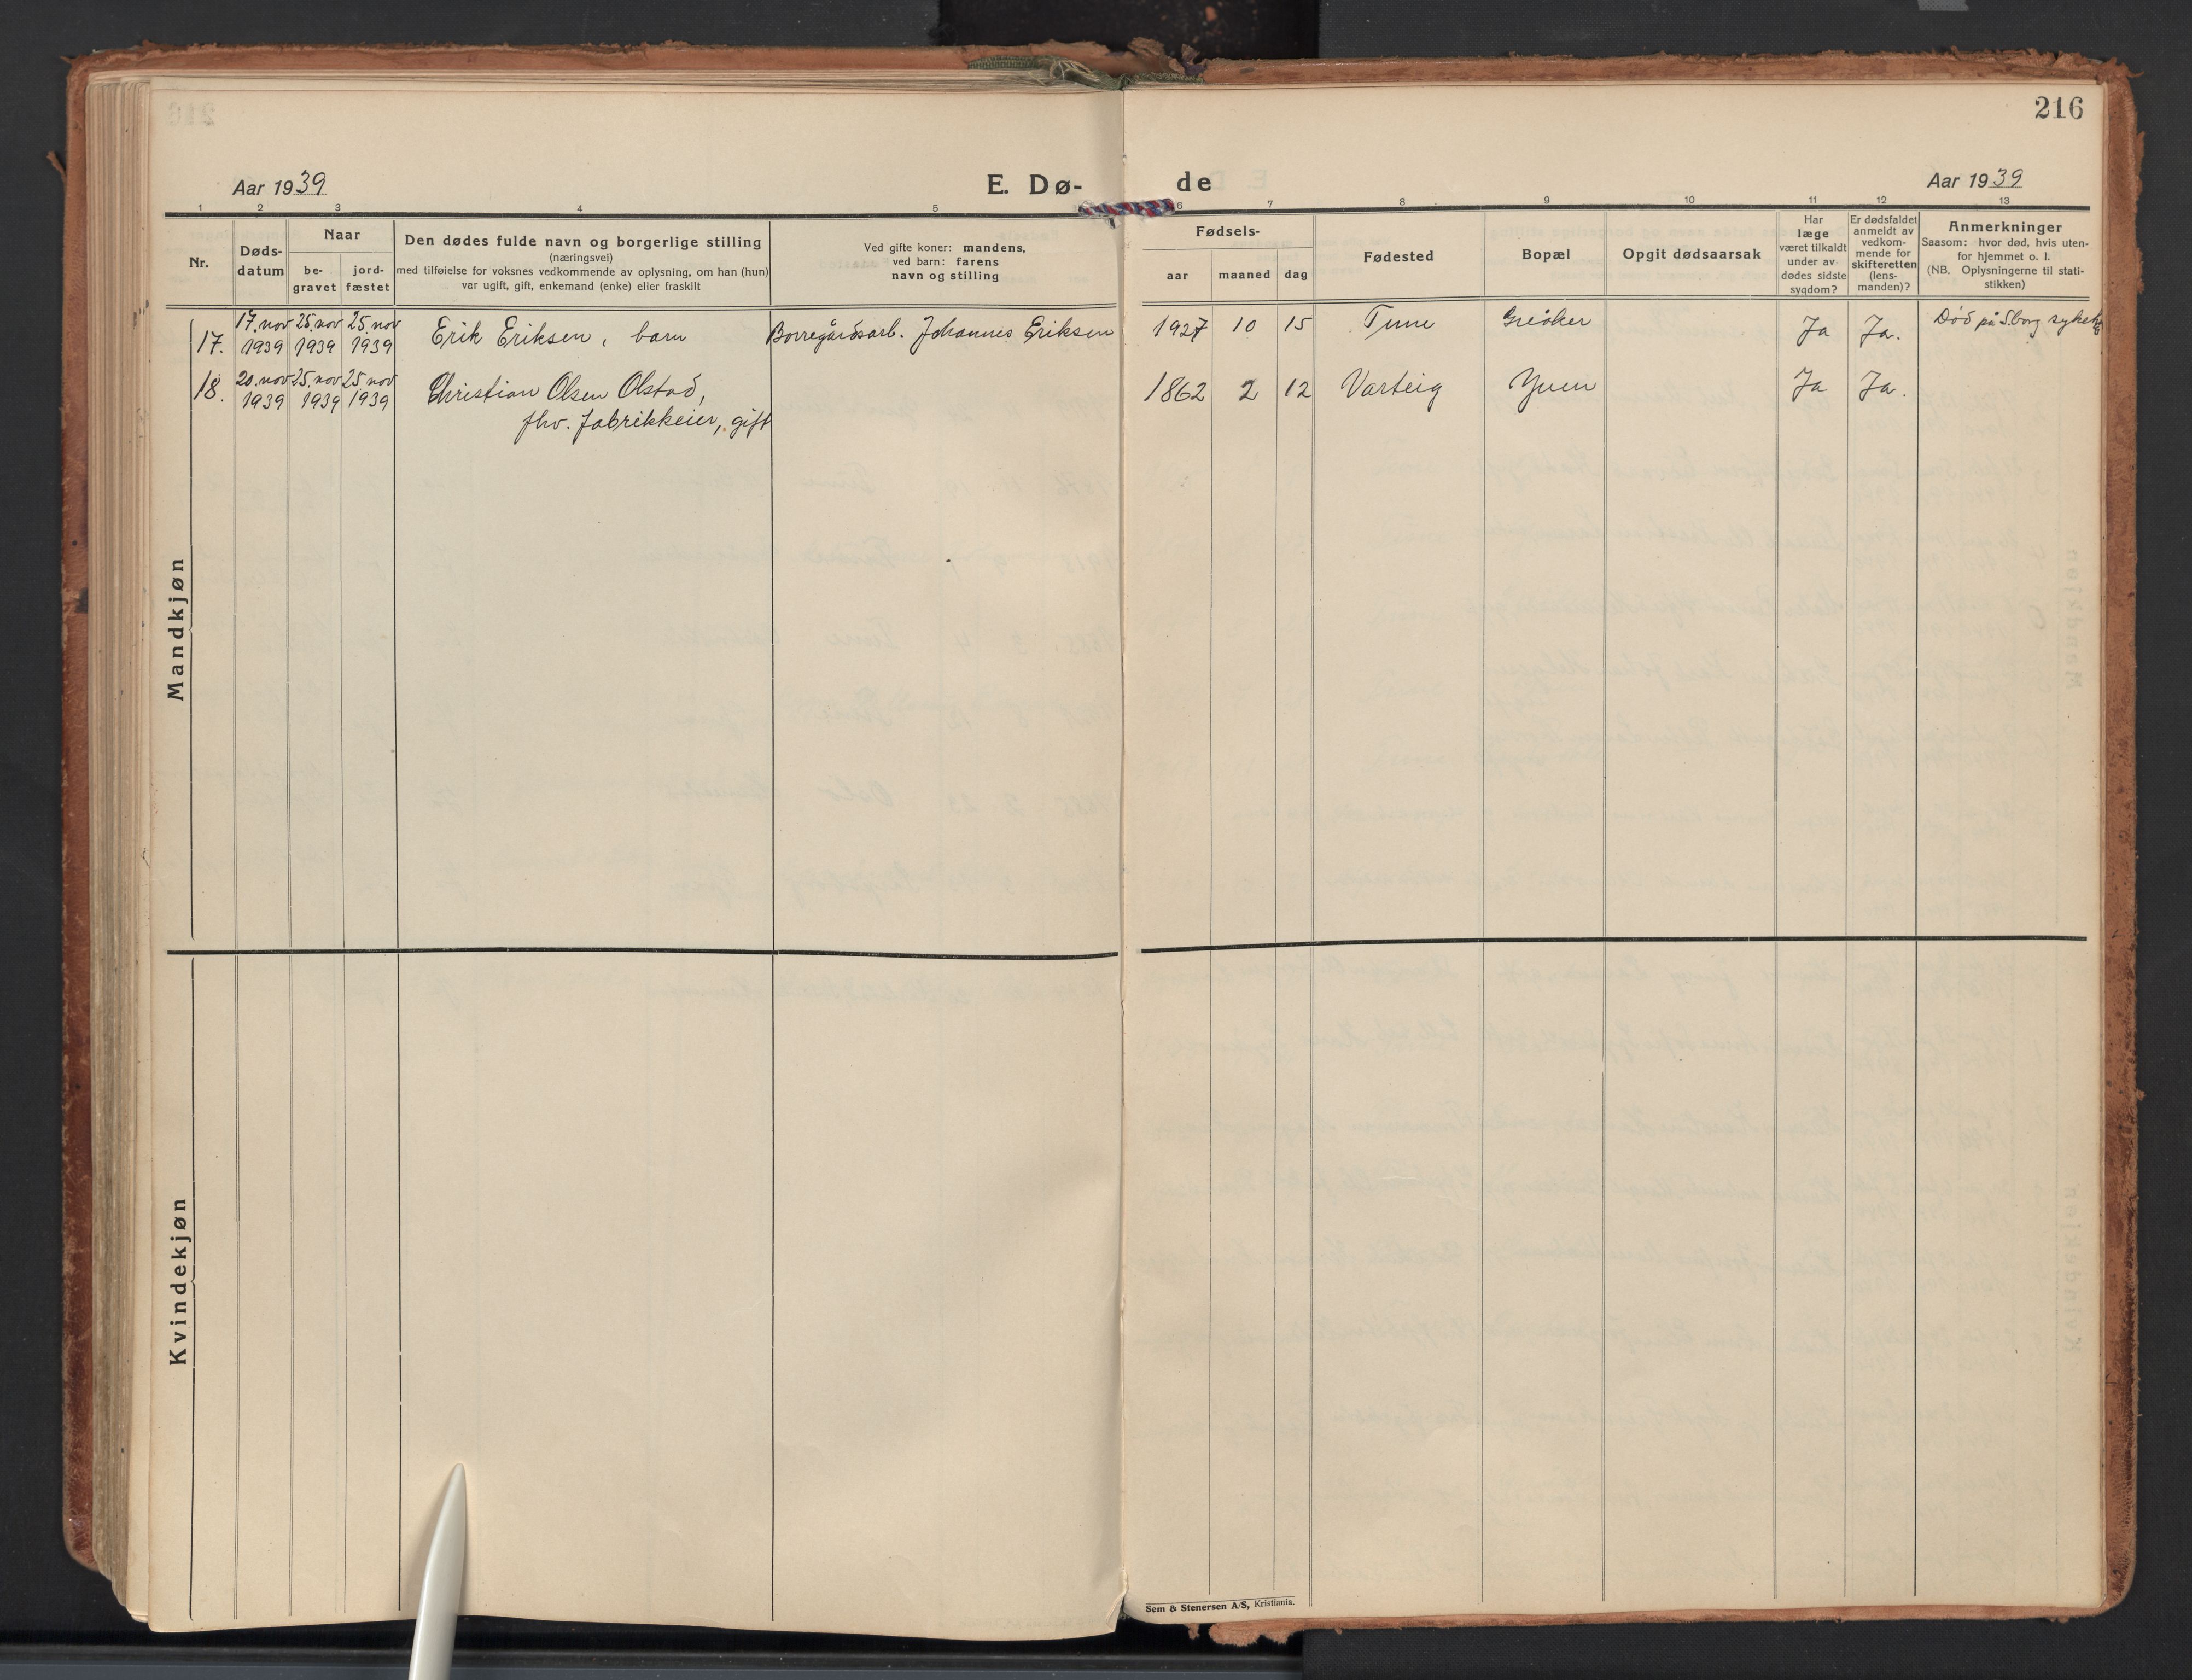 216
Aar 1939 E. Dø- de Aar 1939
1 2 3 4 5 6 7 8 9 10 11 12 13
Nr.
Døds-
datum
Naar
be-
gravet
jord-
fæstet
Den dødes fulde navn og borgerlige stilling
(næringsvei)
med tilføielse for voksnes vedkommende av oplysning, om han (hun)
var ugift, gift, enkemand (enke) eller fraskilt
Ved gifte koner: mandens,
ved barn: farens
navn og stilling
Fødsels-
aar maaned dag
Fødested
Bopæl
Opgit dødsaarsak
Har
læge
været tilkaldt
under av-
dødes sidste
sygdom?
Er dødsfaldet
anmeldt av
vedkom-
mende for
skifteretten
(lens-
manden)?
Anmerkninger
Saasom: hvor død, hvis uten-
for hjemmet o. l.
(NB. Oplysningerne til stati-
stikken)
Mandkjøn
17. 17. nov 1939 25. nov 1939 25. nov 1939 Erik Eriksen, barn Borregårdsarb. Johannes Eriksen 1927 10 15 Tune Greåker Ja Ja. Død på S.borg sykeh.
18. 20. nov 1939 25. nov 1939 25. nov 1939 Christian Olsen Olstad, 1862 2 12 Varteig Yven Ja Ja.
fhv. fabrikkeier, gift
Kvindekjøn
Sem & Stenersen A/S, Kristiania.